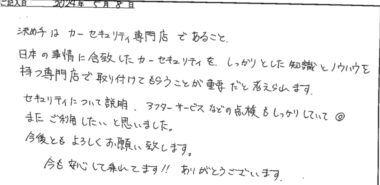 ご記入日 2024年 5月 8日
決め手は カーセキュリティ専門店 であること。
日本の事情に合致したカーセキュリティを、しっかりとした知識とノウハウを
持つ専門店で取り付けてもらうことが重要だと考えられます。
セキュリティについて説明、アフターサービスなどの点検もしっかりしていて◎
またご利用したいと思いました。
今後ともよろしくお願い致します。
今も安心して乗れてます!! ありがとうございます。